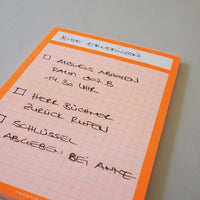 BITTE ERLEDIGEN
☐ MÖBELS ABHOLEN
14.30 UHR
☐ HERR BÜCHNER
ZURÜCK RUFEN
☐ SCHLÜSSEL
ABGEBEN BEI ANKE